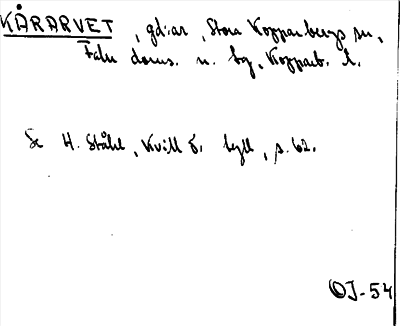 KÅRARVET, gd:ar, Stora Kopparbergs sn,
Falu doms. n. tg, Kopparb. l.
Se H. Ståhl, Kvill o. tyll, s. 62.
OJ-54